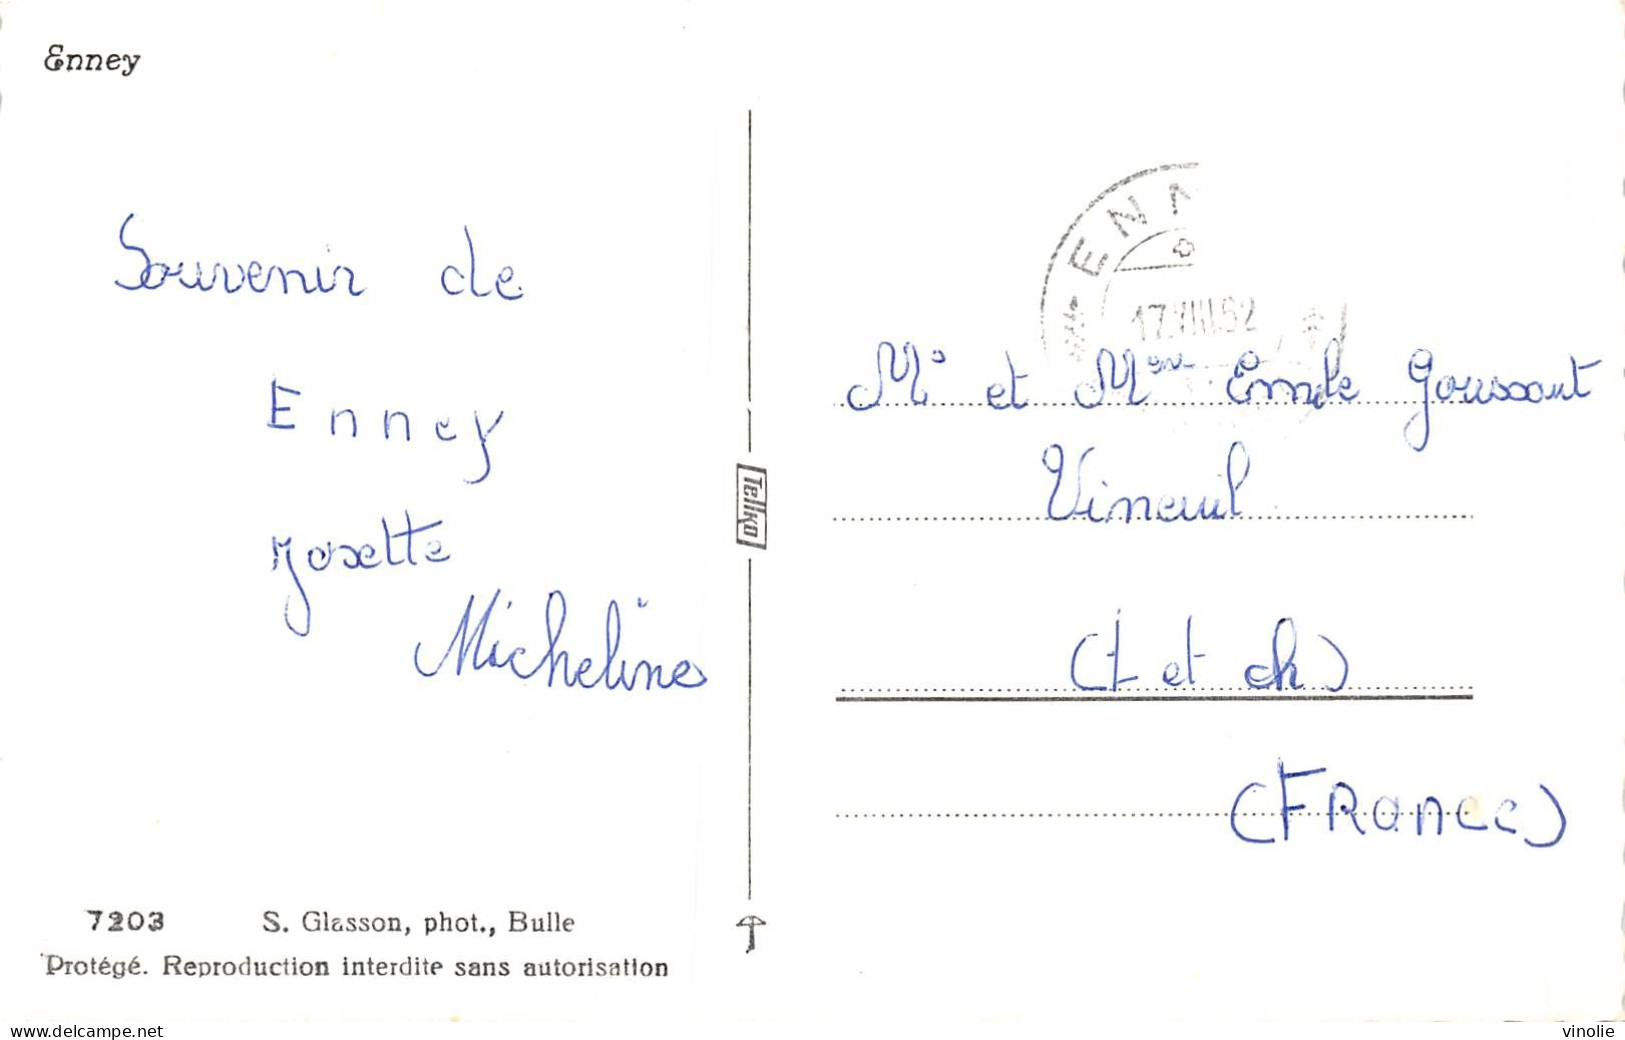 Enney
Souvenir de
Enney
Josette
Micheline
7203 S. Glasson, phot., Bulle
Protégé. Reproduction interdite sans autorisation
Tellko
17.VIII.52
Mr et Mme Emile Goussant
Vineuil
(L et ch)
(FRance)
www.delcampe.net
vinolie